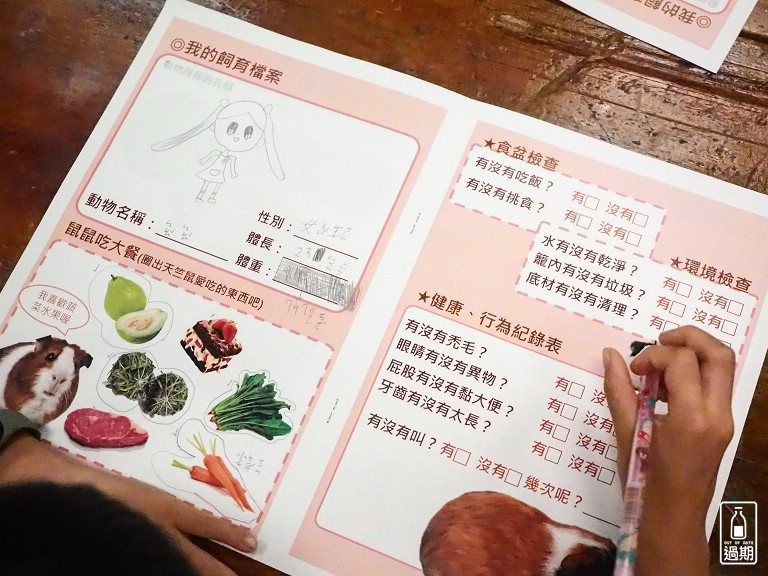 ◎我的飼育檔案
動物與我的合照
動物名稱：
性別：
體長：
體重：
鼠鼠吃大餐(圈出天竺鼠愛吃的東西吧)
我喜歡蔬
菜水果喔
★食盆檢查
有沒有吃飯？ 有□ 沒有□
有沒有挑食？ 有□ 沒有□
★環境檢查
水有沒有乾淨？ 有□ 沒有□
籠內有沒有垃圾？ 有□ 沒有□
底材有沒有清理？ 有□ 沒有□
★健康、行為紀錄表
有沒有禿毛？ 有□ 沒有□
眼睛有沒有異物？ 有□ 沒有□
屁股有沒有黏大便？ 有□ 沒有□
牙齒有沒有太長？ 有□ 沒有□
有沒有叫？有□ 沒有□幾次呢？
OUT OF DATE
過期